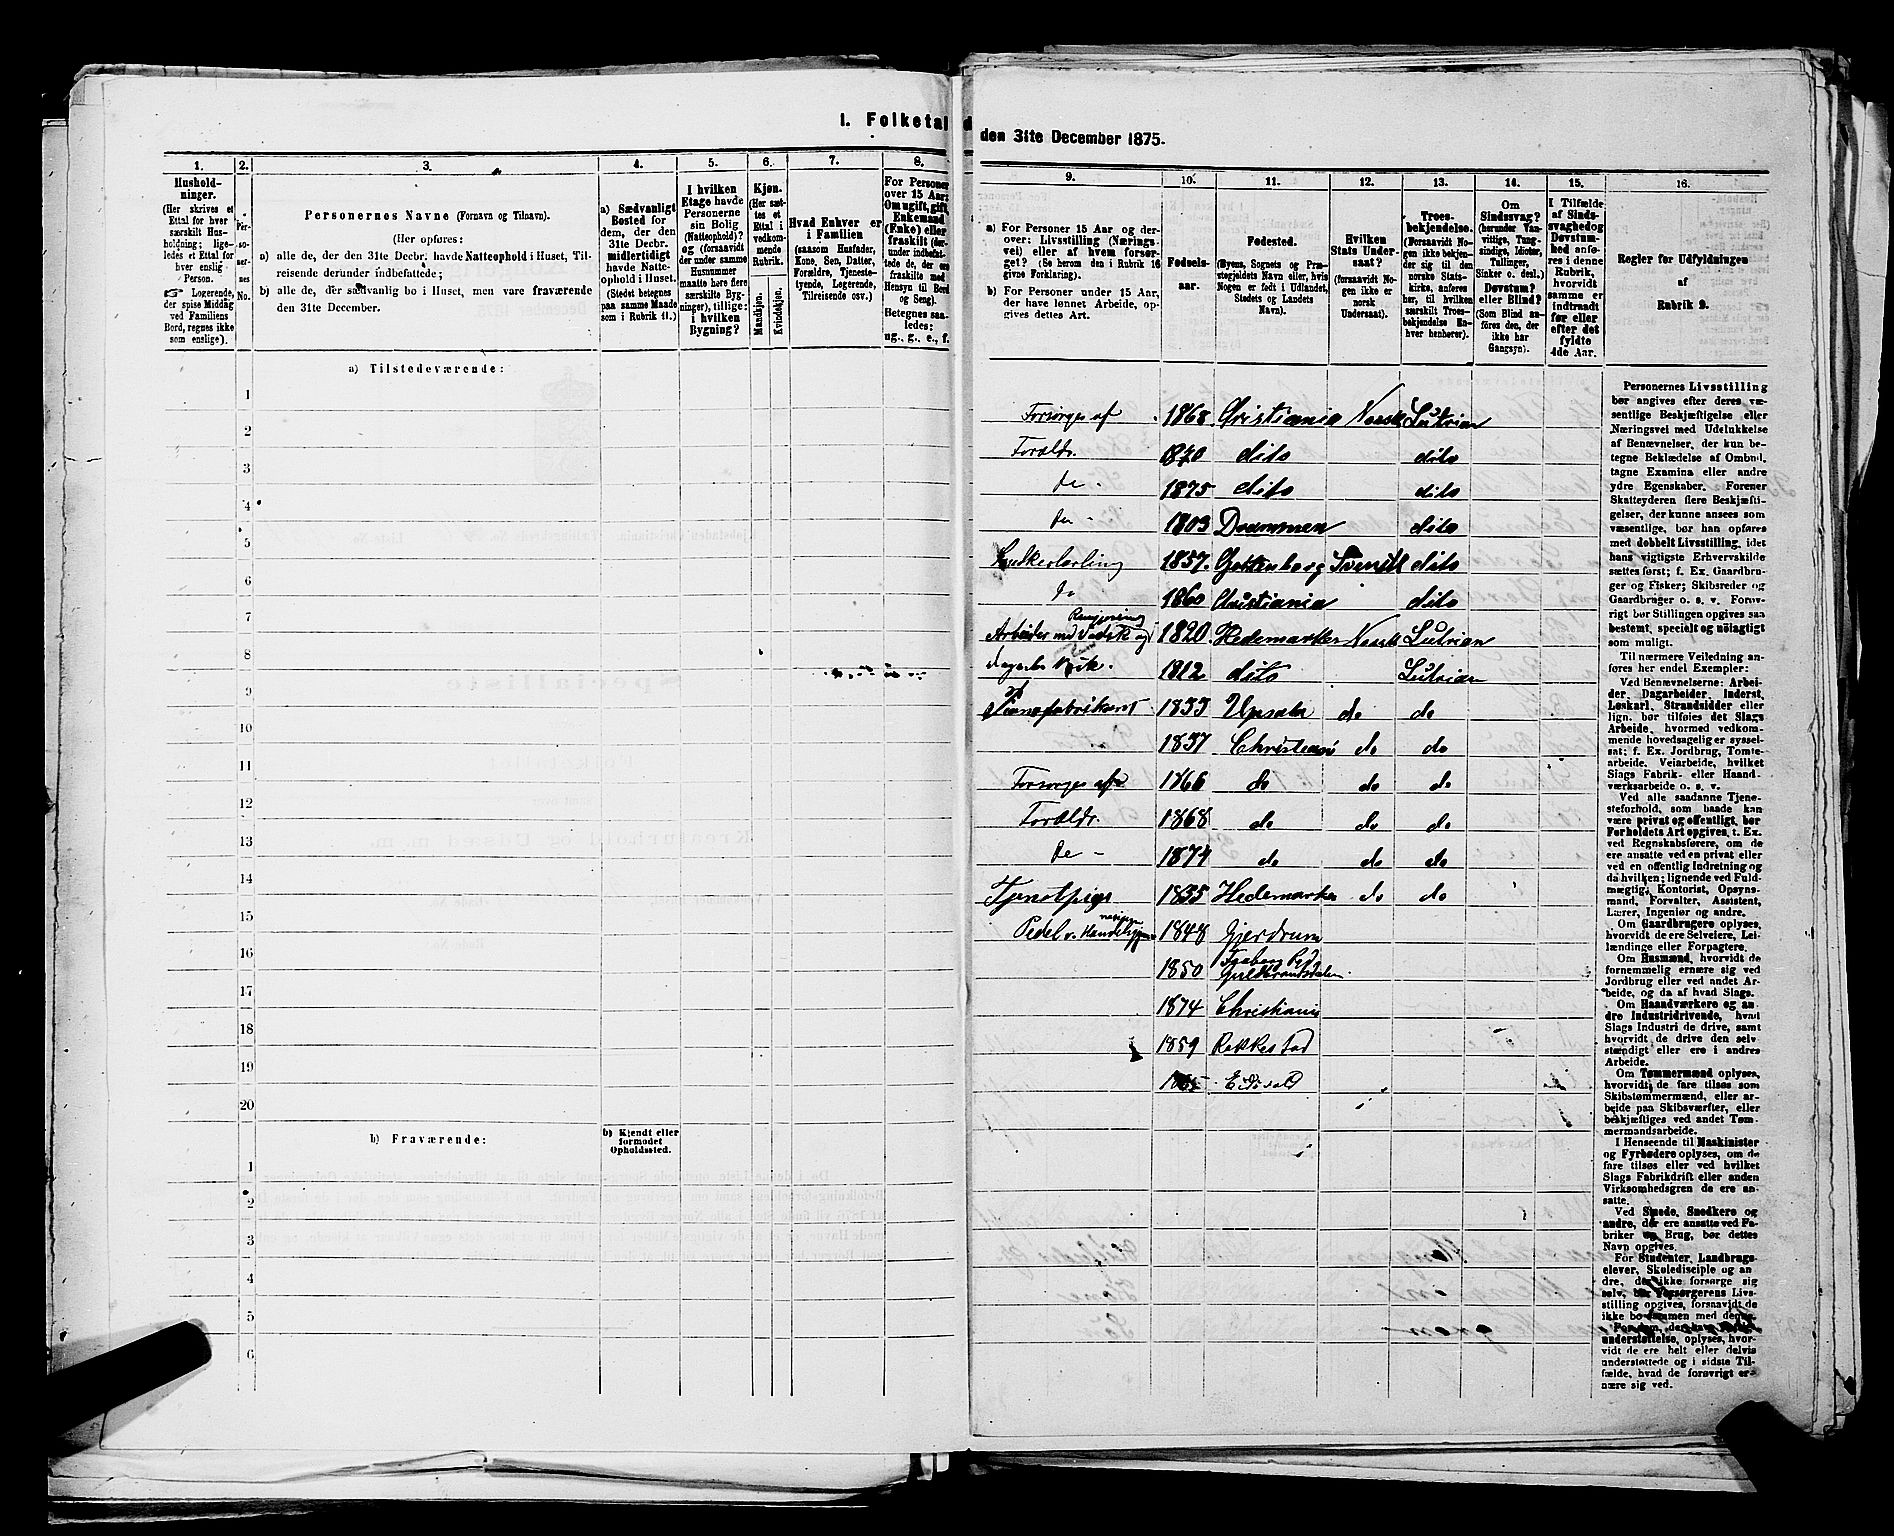 I. Folketal
den 31te December 1875.
1.
2.
3.
4.
5.
6.
7.
8.
Hushold-
ninger.
(Her skrives et
Ettal for hver
særskilt Hus-
holdning; lige-
ledes et Ettal for
hver enslig
Person.
☞ Logerende,
der spise Middag
ved Familiens
Bord, regnes ikke
som enslige).
Per-
so-
ner-
nes
No.
Personernes Navne (Fornavn og Tilnavn).
(Her opføres:
a) alle de, der den 31te Decbr. havde Natteophold i Huset, Til-
reisende derunder indbefattede;
b) alle de, der sædvanlig bo i Huset, men vare fraværende
den 31te December.
a) Sædvanligt
Bosted for
dem, der den
31te Decbr.
midlertidigt
havde Natte-
ophold i Huset.
(Stedet betegnes
paa samme Maade
som i Rubrik 11.)
I hvilken
Etage havde
Personerne
sin Bolig
(Natteophold)?
og (forsaavidt
der under samme
Husnummer
maatte høre flere
særskilte Byg-
ninger), tillige:
i hvilken
Bygning?
Kjøn.
(Her sæt-
tes et
Ettal i
vedkom-
mende
Rubrik.
Mandkjøn.
Kvindekjøn.
Hvad Enhver er
i Familien
(saasom Husfader,
Kone, Søn, Datter,
Forældre, Tjeneste-
tyende, Logerende,
Tilreisende osv.)
For Personer
over 15 Aar:
Om ugift, gift,
Enkemand
(Enke) eller
fraskilt
Hensyn til Bord
og Seng).
Betegnes saa-
ledes:
ug., g., e., f.
a) Tilstedeværende:
1
2
3
4
5
6
7
8
9
10
11
12
13
14
15
16
17
18
19
20
b) Fraværende:
b) Kjendt eller
formodet
Opholdssted.
1
2
3
4
5
6
9.
10.
11.
12.
13.
14.
15.
16.
a) For Personer 15 Aar og der-
over: Livsstilling (Nærings-
vei) eller af hvem forsør-
get? (Se herom den i Rubrik 16
givne Forklaring).
b) For Personer under 15 Aar,
der have lønnet Arbeide, op-
gives dettes Art.
Fødsels-
aar.
Fødested.
(Byens, Sognets og Præ-
stegjeldets Navn eller, hvis
Nogen er født i Udlandet,
Stedets og Landets
Navn).
Hvilken
Stats Under-
saat?
(forsaavidt No-
gen ikke er
norsk
Undersaat).
Troes-
bekjendelse.
(Forsaavidt No-
gen ikke bekjen-
der sig til den
norske Stats-
kirke, anføres
her, til hvilken
særskilt Troes-
bekjendelse En-
hver henhører).
Om
Sindssvag?
(herunder Van-
vittige, Tung-
sindige, Idioter,
Tullinger,
Sinker o. desl.)
Døvstum?
eller Blind?
(Som Blind an-
føres den, der
ikke har
Gangsyn).
I Tilfælde
af Sinds-
svaghed og
Døvstum-
hed anfø-
res i denne
Rubrik,
hvorvidt
samme er
indtraadt
før eller
efter det
fyldte
4de Aar.
Regler for Udfyldningen
af
Rubrik 9.
Forsørges af 1868 Christiania Norsk Lutrian
Forældr. 1870 dito dito
do - 1875 dito dito
do - 1803 Drammen dito
1857. Gottenborg Svensk dito
do 1860 Christiania dito
Rengjøring
Arbeider ved 1820 Hedemarken Norsk Lutrian
1812 dito Lutrian
Pianofabrikant 1833 Upsala do do
1837 Christiania do do
Forsørges af 1866 do do do
Forældr. 1868 do do do
do - 1874 do do do
Tjenestpige 1835 Hedemarken do do
Pedel v. 1848 Gjerdrum
1850 Faaberg
Guldbrandsdalen
1874 Christiania
1859 Rakkestad
Eidsvold
Personernes Livsstilling
bør angives efter deres væ-
sentlige Beskjæftigelse eller
Næringsvei med Udelukkelse
af Benævnelser, der kun be-
tegne Beklædelse af Ombud,
tagne Examina eller andre
ydre Egenskaber. Forener
Skatteyderen flere Beskjæfti-
gelser, der kunne ansees som
væsentlige, bør han opføres
med dobbelt Livsstilling, idet
hans vigtigste Erhvervskilde
sættes først; f. Ex. Gaardbru-
ger og Fisker; Skibsreder og
Gaardbruger o. s. v. Forøv-
rigt bør Stillingen opgives saa
bestemt, specielt og nöiagtigt
som muligt.
Til nærmere Veiledning an-
føres her endel Exempler:
Ved Benævnelserne: Arbei-
der, Dagarbeider, Inderst,
Løskarl, Strandsidder eller
lign. bør tilføies det Slags
Arbeide, hvormed vedkom-
mende hovedsagelig er syssel-
sat; f. Ex. Jordbrug, Tomte-
arbeide, Veiarbeide, hvilket
Slags Fabrik- eller Haand-
værksarbeide o. s. v.
Ved alle saadanne Tjene-
steforhold, som baade kan
være privat og offentligt, bør
Forholdets Art opgives, t. Ex.
ved Regnskabsførere, om de
ere ansatte ved en privat eller
ved en offentlig Indretning og
da hvilken; lignende ved Fuld-
mægtig, Kontorist, Opsyns-
mand, Forvalter, Assistent,
Lærer, Ingeniør og andre.
Om Gaardbrugere oplyses,
hvorvidt de ere Selveiere, Lei-
lændinge eller Forpagtere.
Om Husmænd, hvorvidt de
fornemmelig ernære sig ved
Jordbrug eller ved andet Ar-
beide, og da af hvad Slags.
Om Haandværkere og an-
dre Industridrivende, hvad
Slags Industri de drive, samt
hvorvidt de drive den selv-
stændigt eller ere i andres
Arbeide.
Om Tømmermænd oplyses,
hvorvidt de fare tilsøs som
Skibstømmermænd, eller ar-
beide paa Skibsværfter, eller
beskjæftiges ved andet Tøm-
mermandsarbeide.
I Henseende til Maskinister
og Fyrbødere oplyses, om de
fare tilsøs eller ved hvilket
Slags Fabrikdrift eller anden
Virksomhedsgren de ere an-
satte.
Ved Smede, Snedkere og
andre, der ere ansatte ved Fa-
briker og Brug, bør dettes
Navn opgives.
For Studenter, Landbrugs-
elever, Skoledisciple og an-
dre, der ikke forsørge sig
selv, bør Forsørgerens Livs-
stilling opgives, forsaavidt de
ikke bo sammen med denne.
For dem, der
understøttelse, oplyses, hvor-
vidt de ere helt eller delvis
understøttede og i sidste Til-
fælde, hvad de forøvrigt er-
nære sig ved.